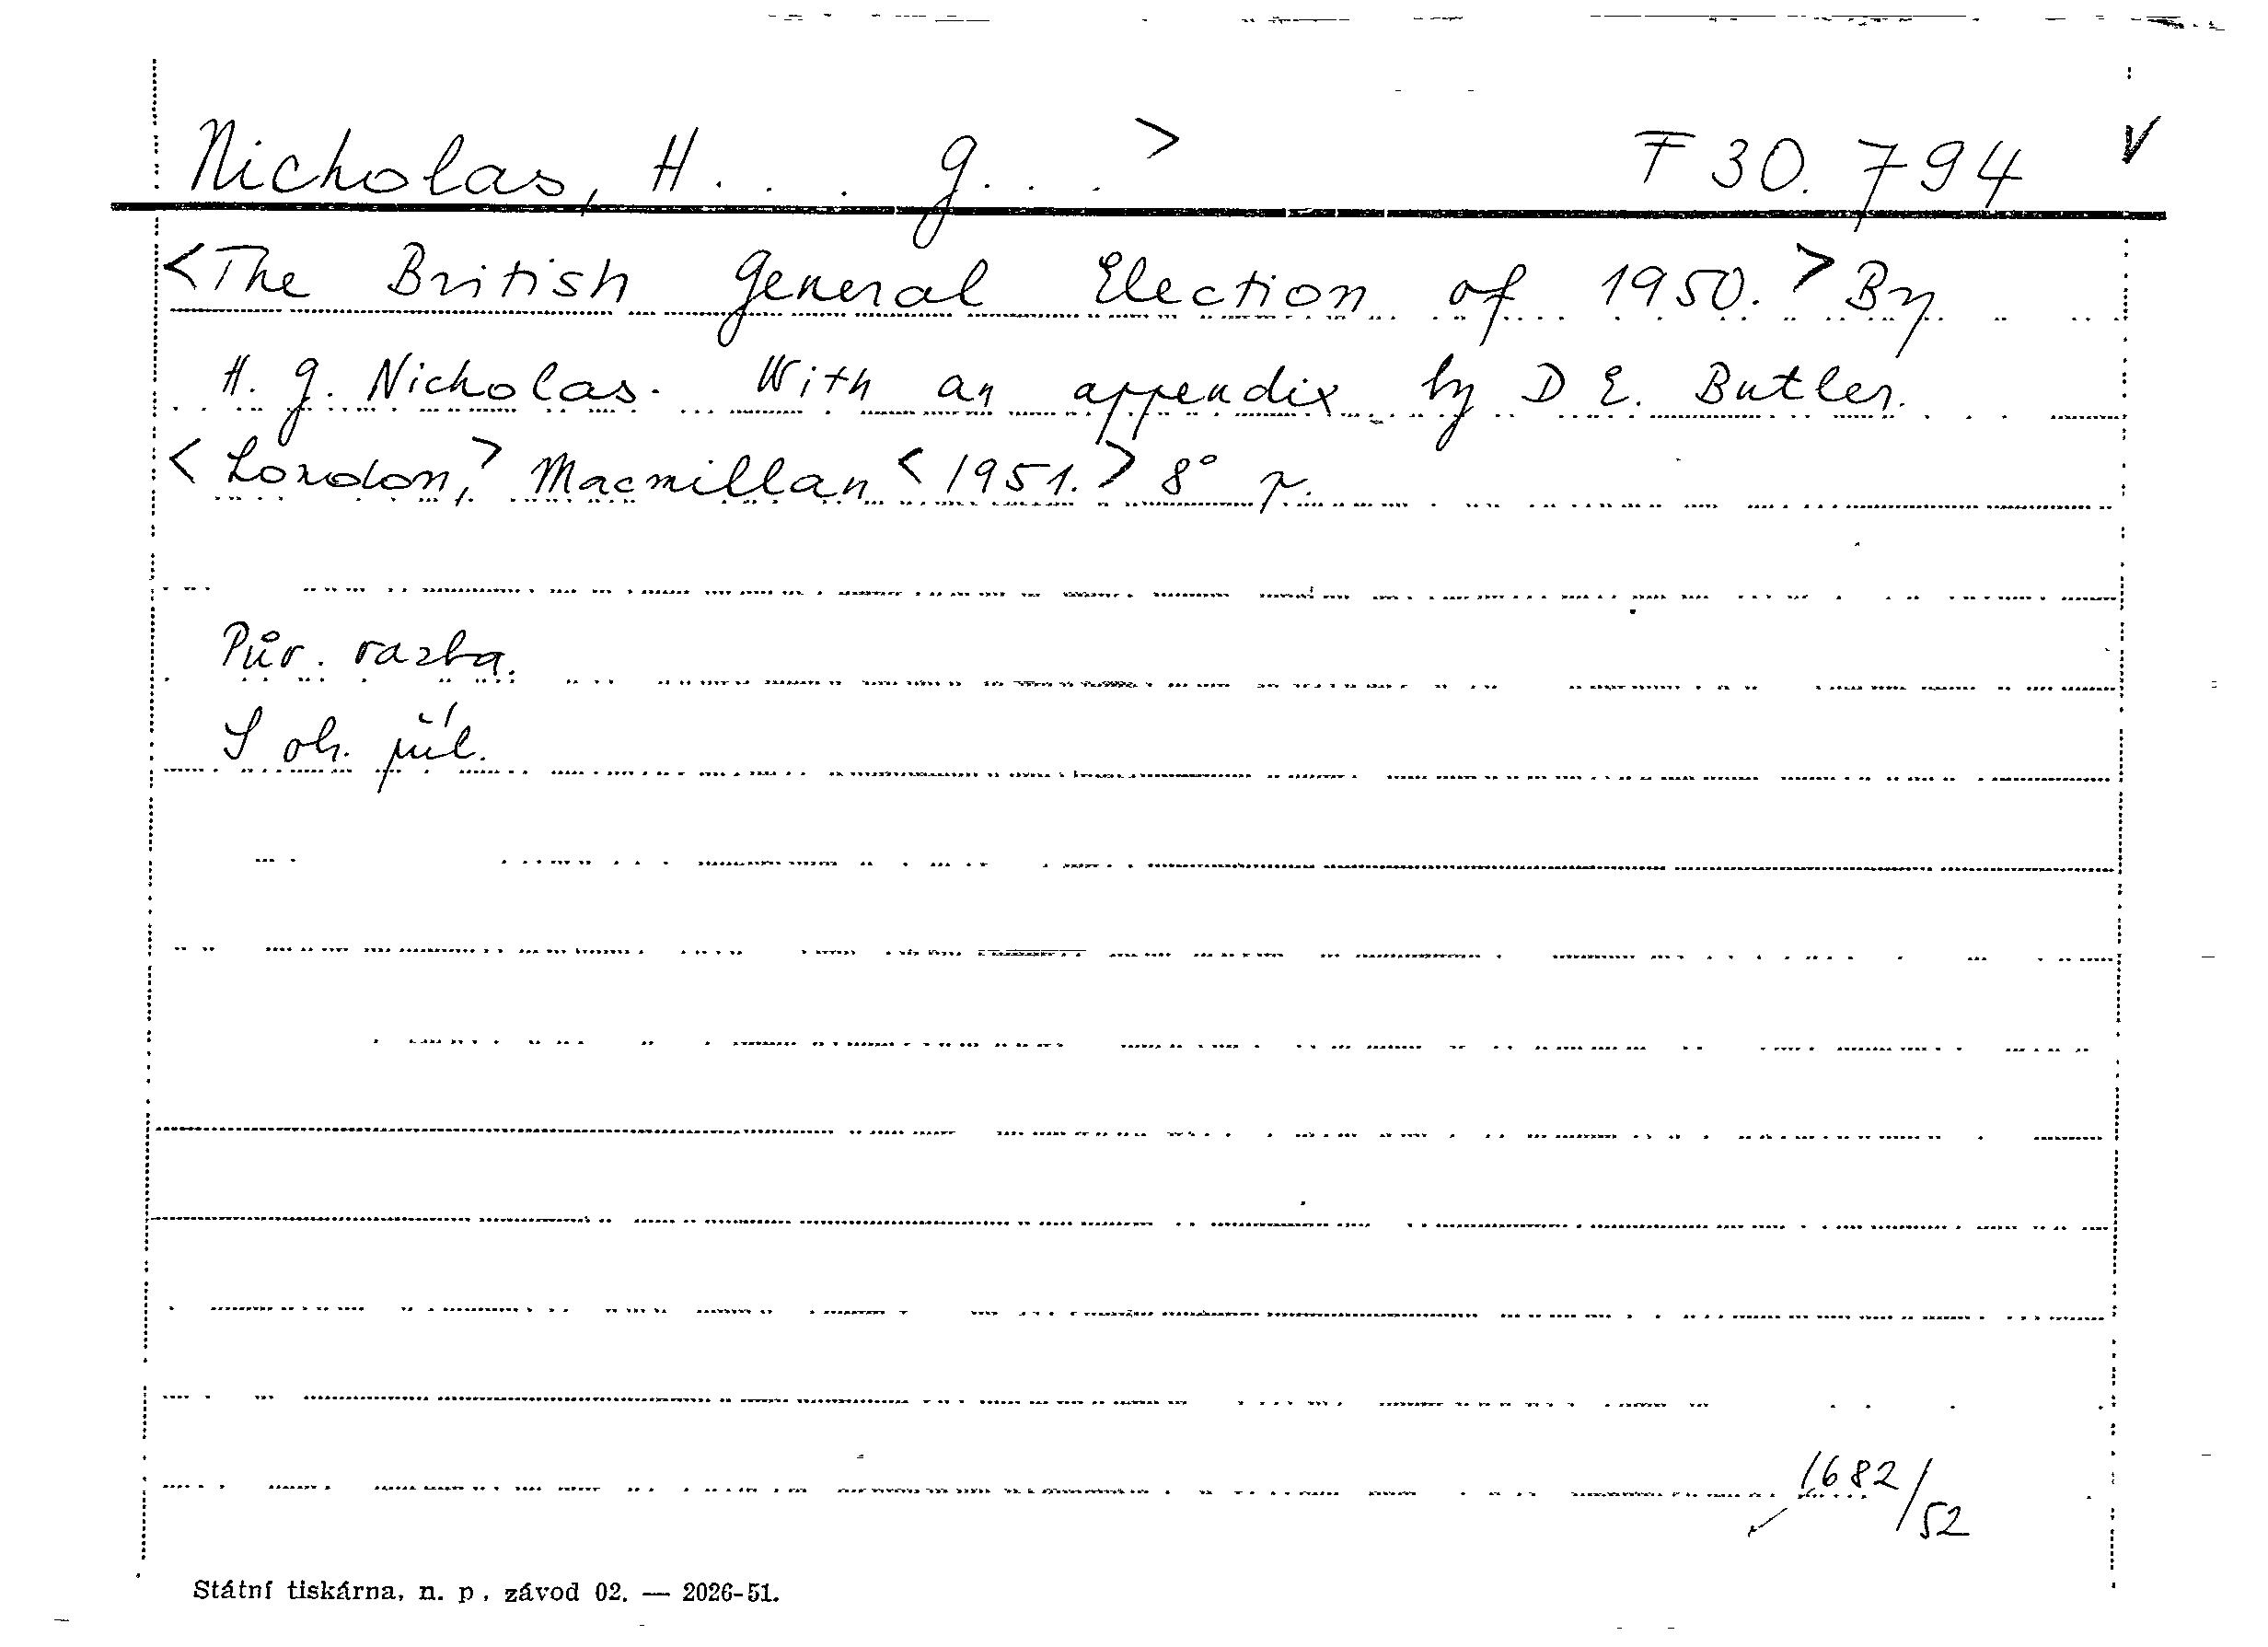 Nicholas, H. . . . G. . . . > F 30.794 V
<The British General Election of 1950.> By
H. G. Nicholas. With an appendix by D E. Butler.
<London,> Macmillan <1951.> 8° p.
Pův. vazba.
S ob. příl.
1682/52
Státní tiskárna, n. p., závod 02. — 2026-51.